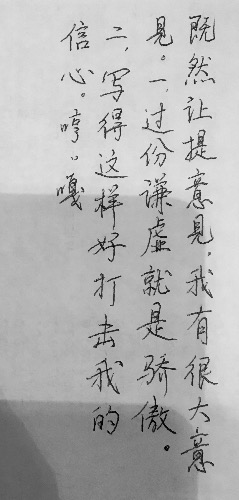 既然让提意见，我有很大意
见。一、过份谦虚就是骄傲。
二、写得这样好打击我的
信心。哼。嘎